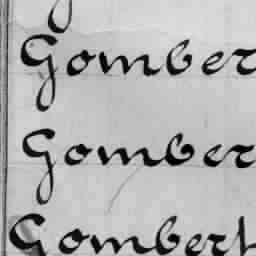 Gomber
Gomber
Gombert